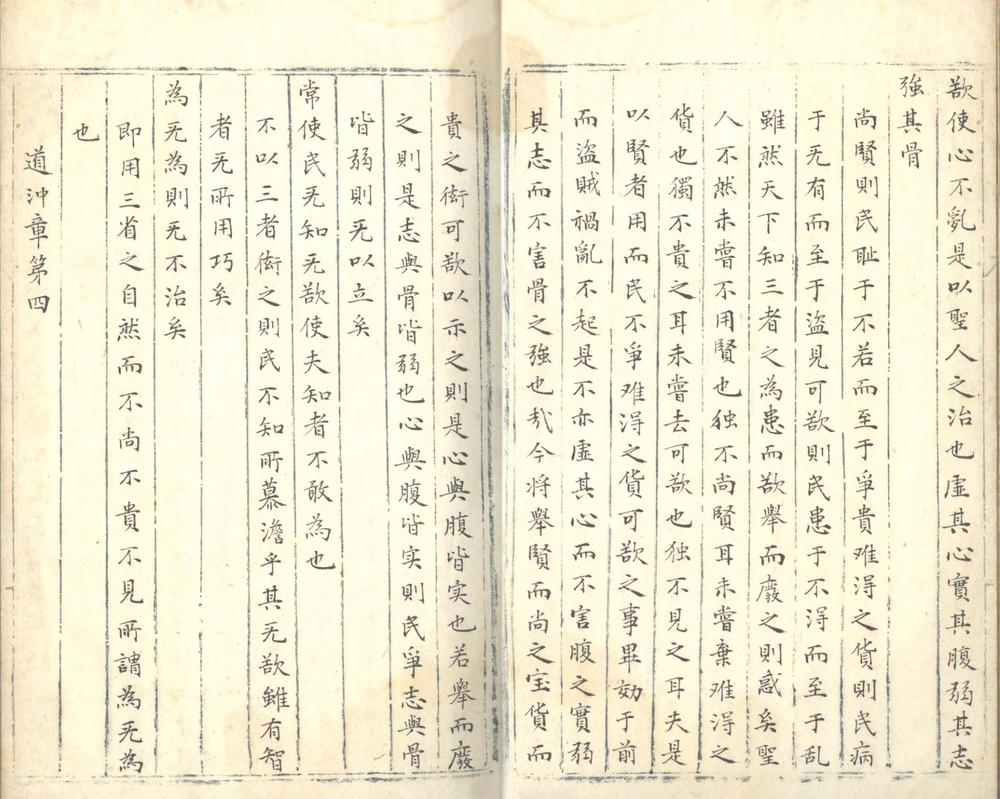 欲使心不亂是以聖人之治也虛其心實其腹弱其志
強其骨
尚賢則民耻于不若而至于爭貴难淂之貨則民病
于旡有而至于盜見可欲則民患于不淂而至于乱
雖然天下知三者之為患而欲舉而廢之則惑矣聖
人不然未甞不用賢也独不尚賢耳未甞棄难淂之
貨也獨不貴之耳未甞去可欲也独不見之耳夫是
以賢者用而民不爭难淂之貨可欲之事畢効于前
而盜賊禍亂不起是不亦虛其心而不害腹之實弱
其志而不害骨之強也㢤今将舉賢而尚之宝貨而
貴之衒可欲以示之則是心與腹皆实也若舉而廢
之則是志與骨皆弱也心與腹皆实則民爭志與骨
皆弱則旡以立矣
常使民旡知旡欲使夫知者不敢為也
不以三者衒之則民不知所慕澹乎其旡欲雖有智
者旡所用巧矣
為旡為則旡不治矣
即用三省之自然而不尚不貴不見所謂為旡為
也
道沖章第四